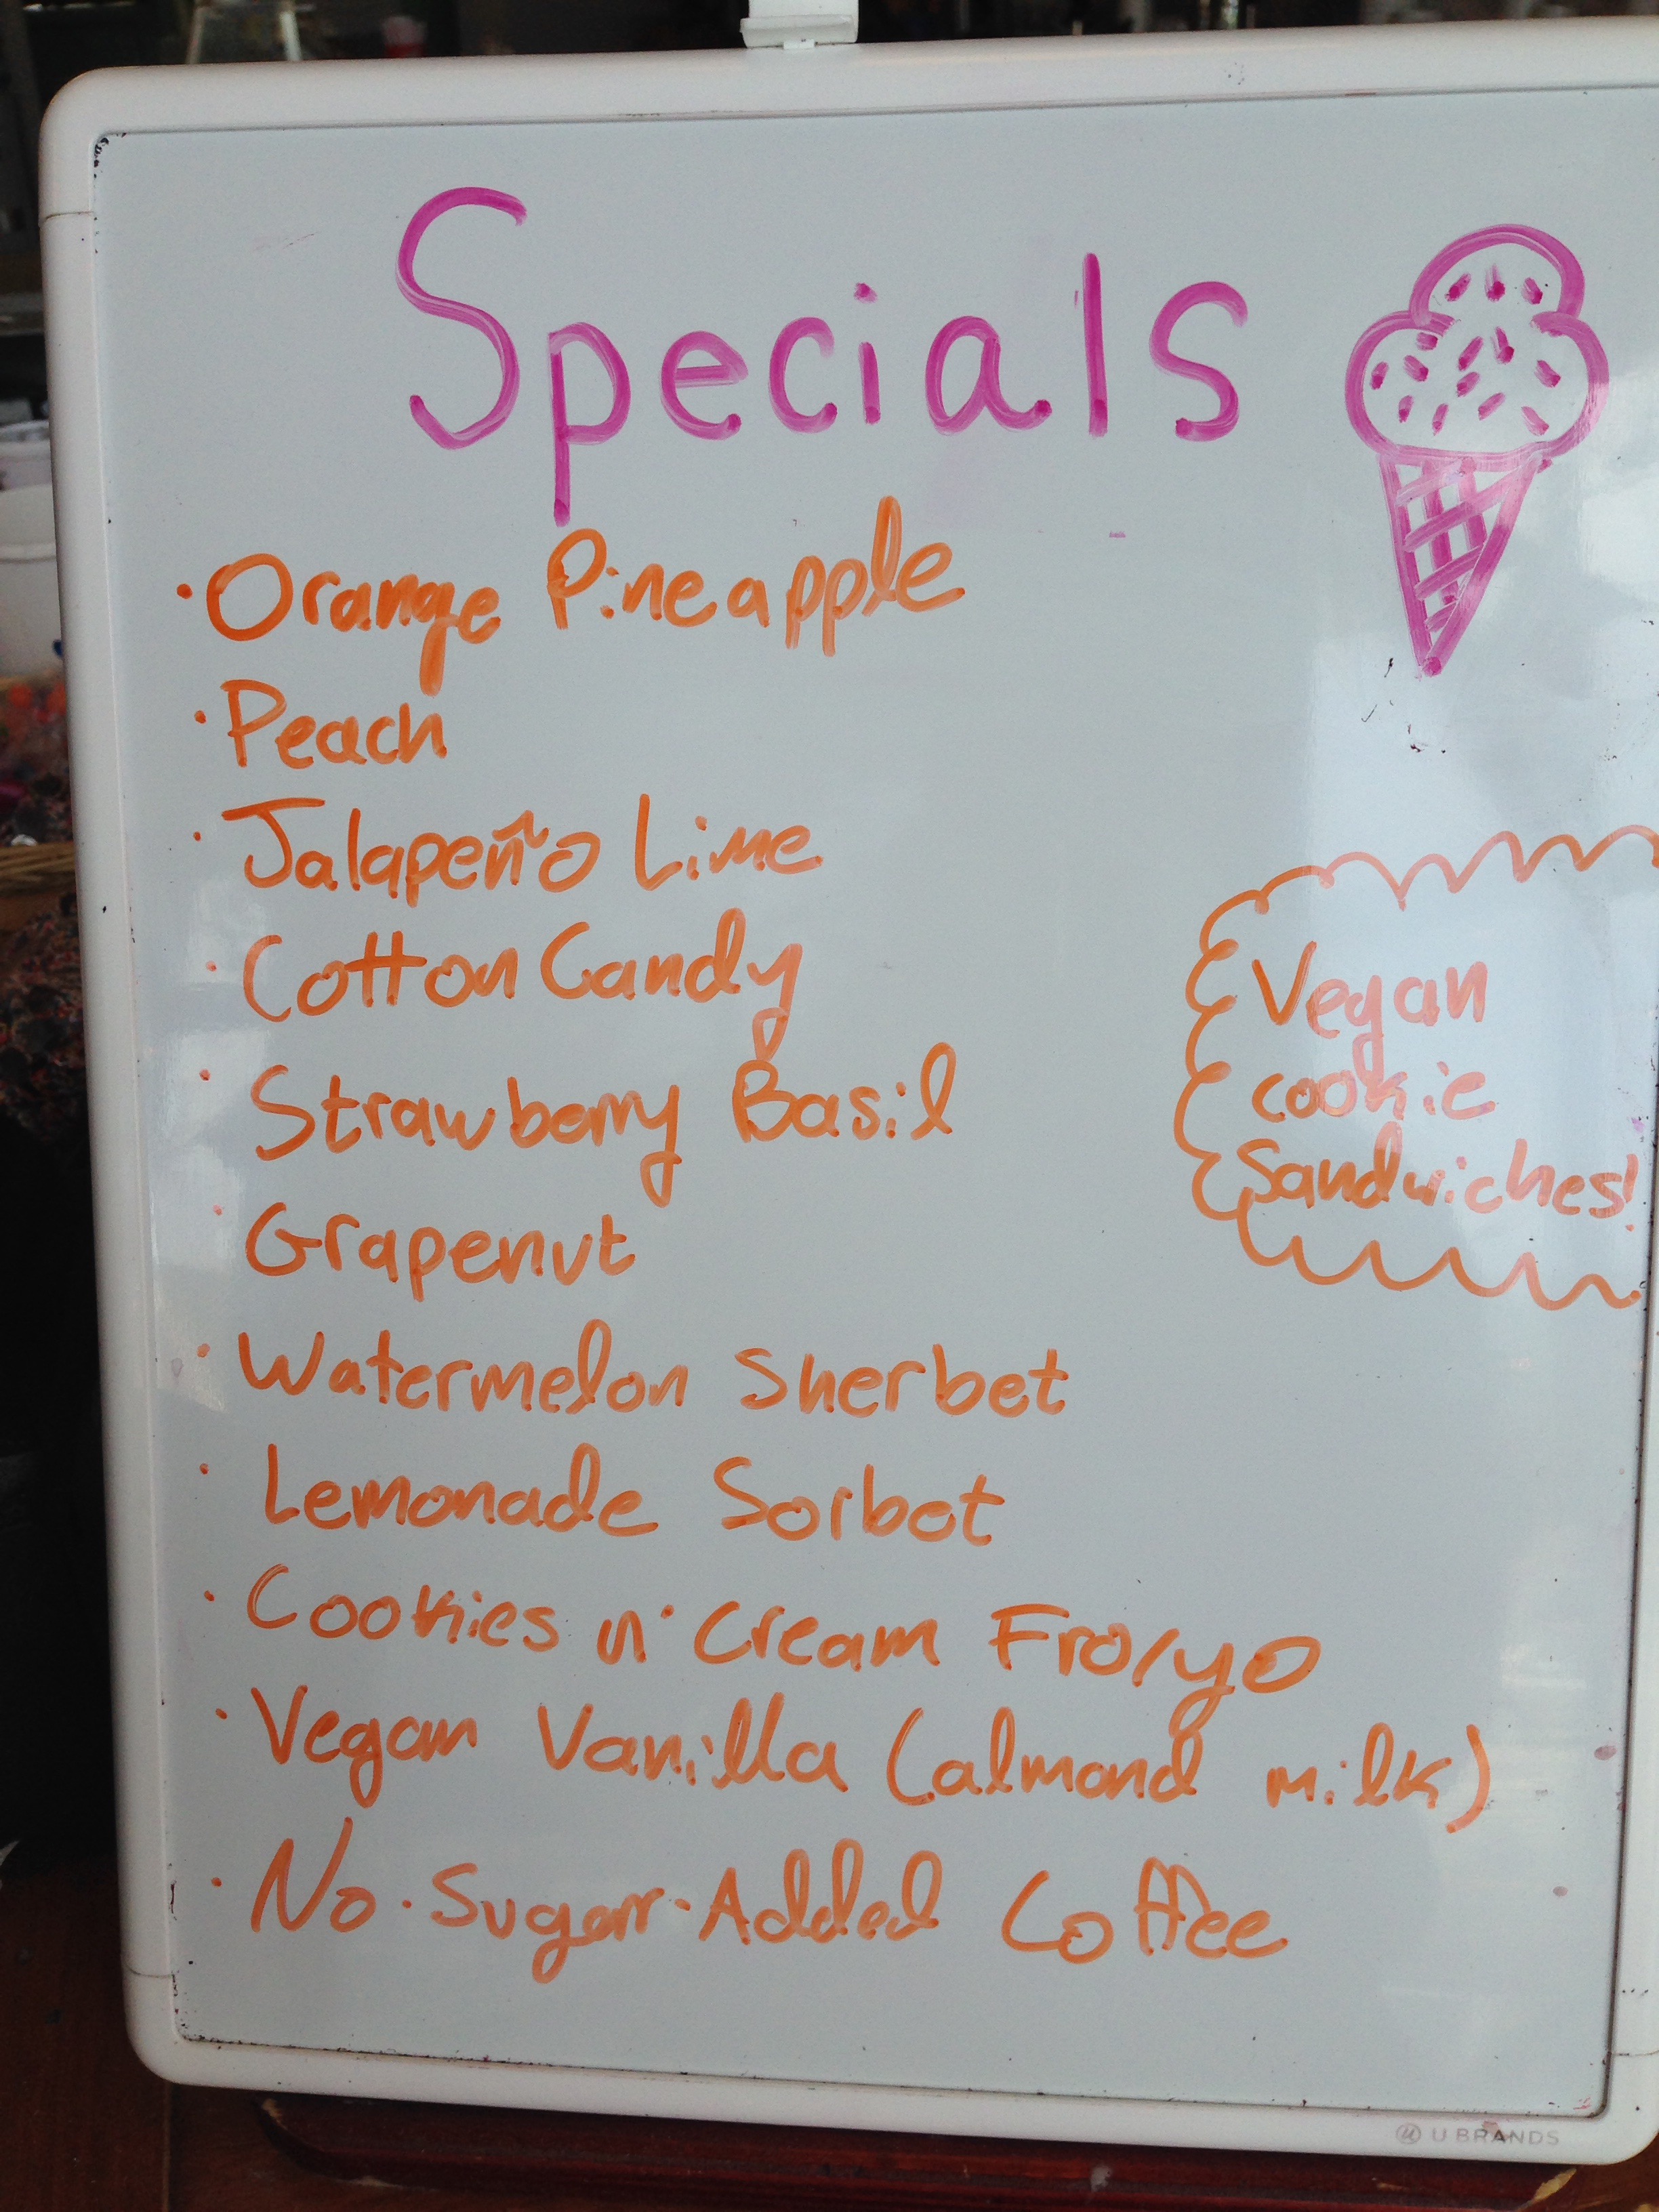 Specials
· Orange Pineapple
· Peach
· Jalapeño Lime
· Cotton Candy
· Strawberry Basil
· Grapenut
· Watermelon Sherbet
· Lemonade Sorbet
· Cookies n' Cream Fro/yo
· Vegan Vanilla (almond milk)
· No-Sugar-Added Coffee
Vegan
cookie
Sandwiches!
U BRANDS